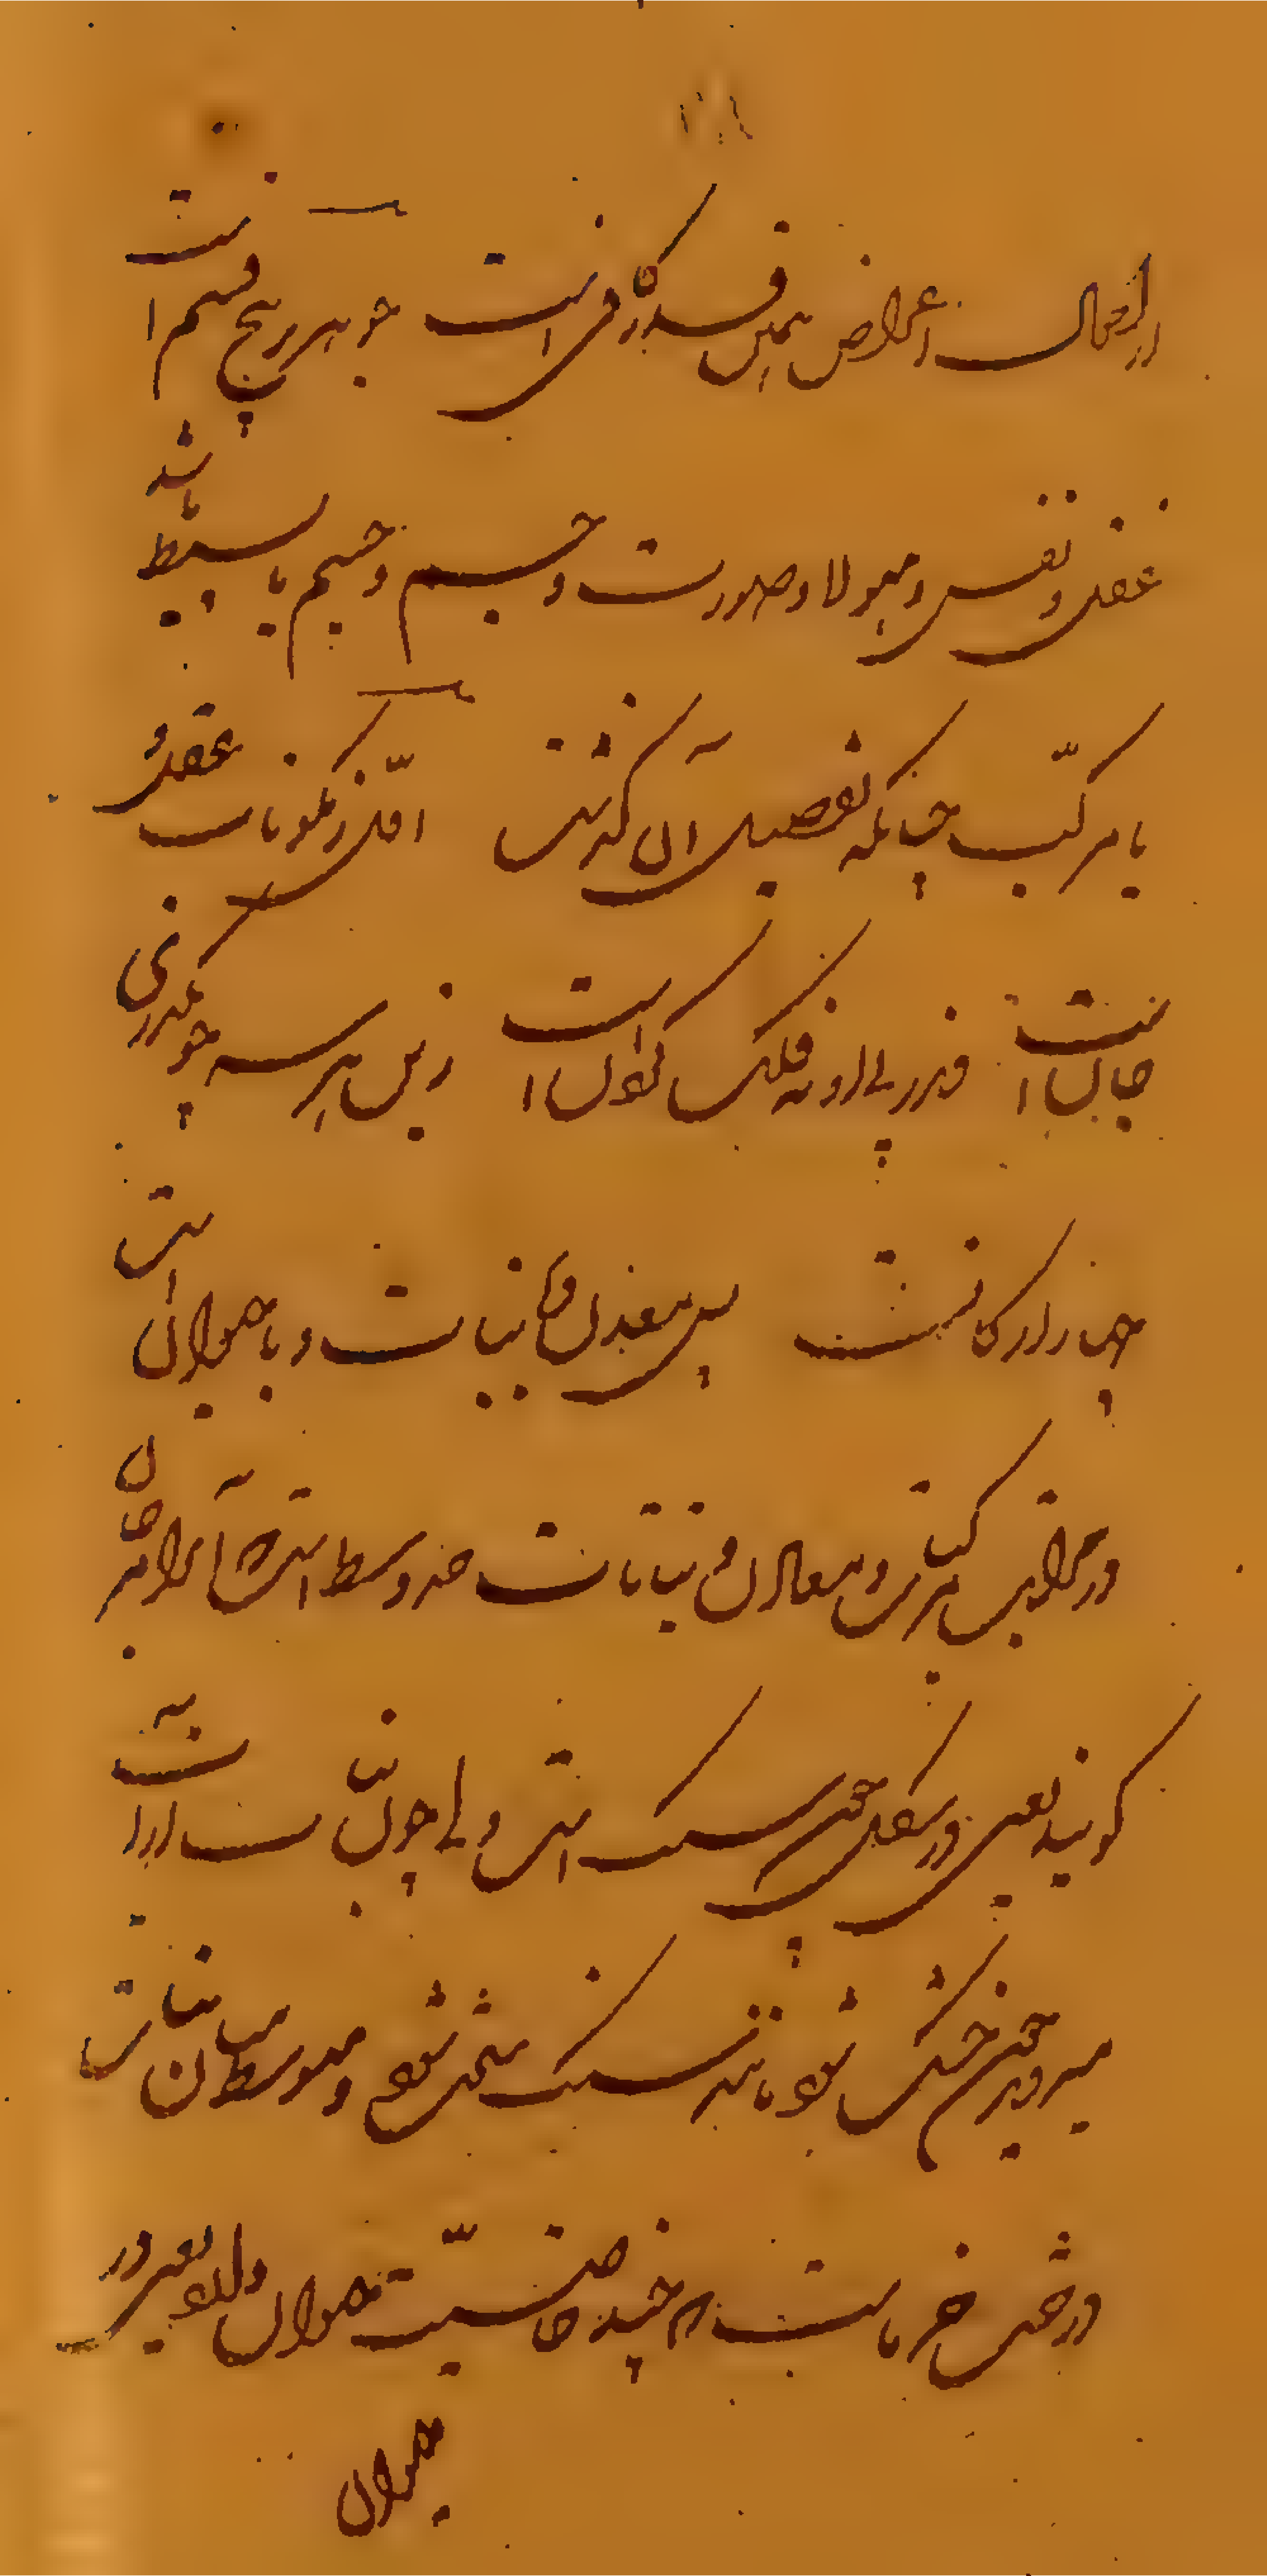 از احوال اعراض همین قدر کافی است جوهر پنج قسم است
عقل و نفس و هیولا و صورت و جسم و جسم یا بسیط باشد
یا مرکب چنانکه تفصیل آن گذشت اول ز مکونات عقل و
جان است و ندر پی او نه فلک گردان است زین هر سه چو بگذری
چهار ارکانست پس معدن و نبات و با حیوان است
و در مراتب مرکبات و معادن و نباتات حد وسط است که آنرا مرجان
گویند یعنی در شکل همچو سنگ است ولی چون نبات از آب
میروید چون خشک شود مانند سنگ سخت شود و متوسط میان نبات
و حیوان درخت خرماست که چند خاصیت حیوان دارد یعنی در
حیوان